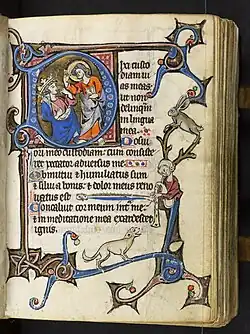 ixi custo
diam ui
as meas
ut non
delinqm
in lingua
mea. Posui
ori meo custodiam: cum consiste
ret peccator adversus me
Obmutui & humiliatus sum
& silui a bonis: & dolor meus reno
vatus est
Concaluit cor meum int me:
& in meditatione mea exardescet
ignis.